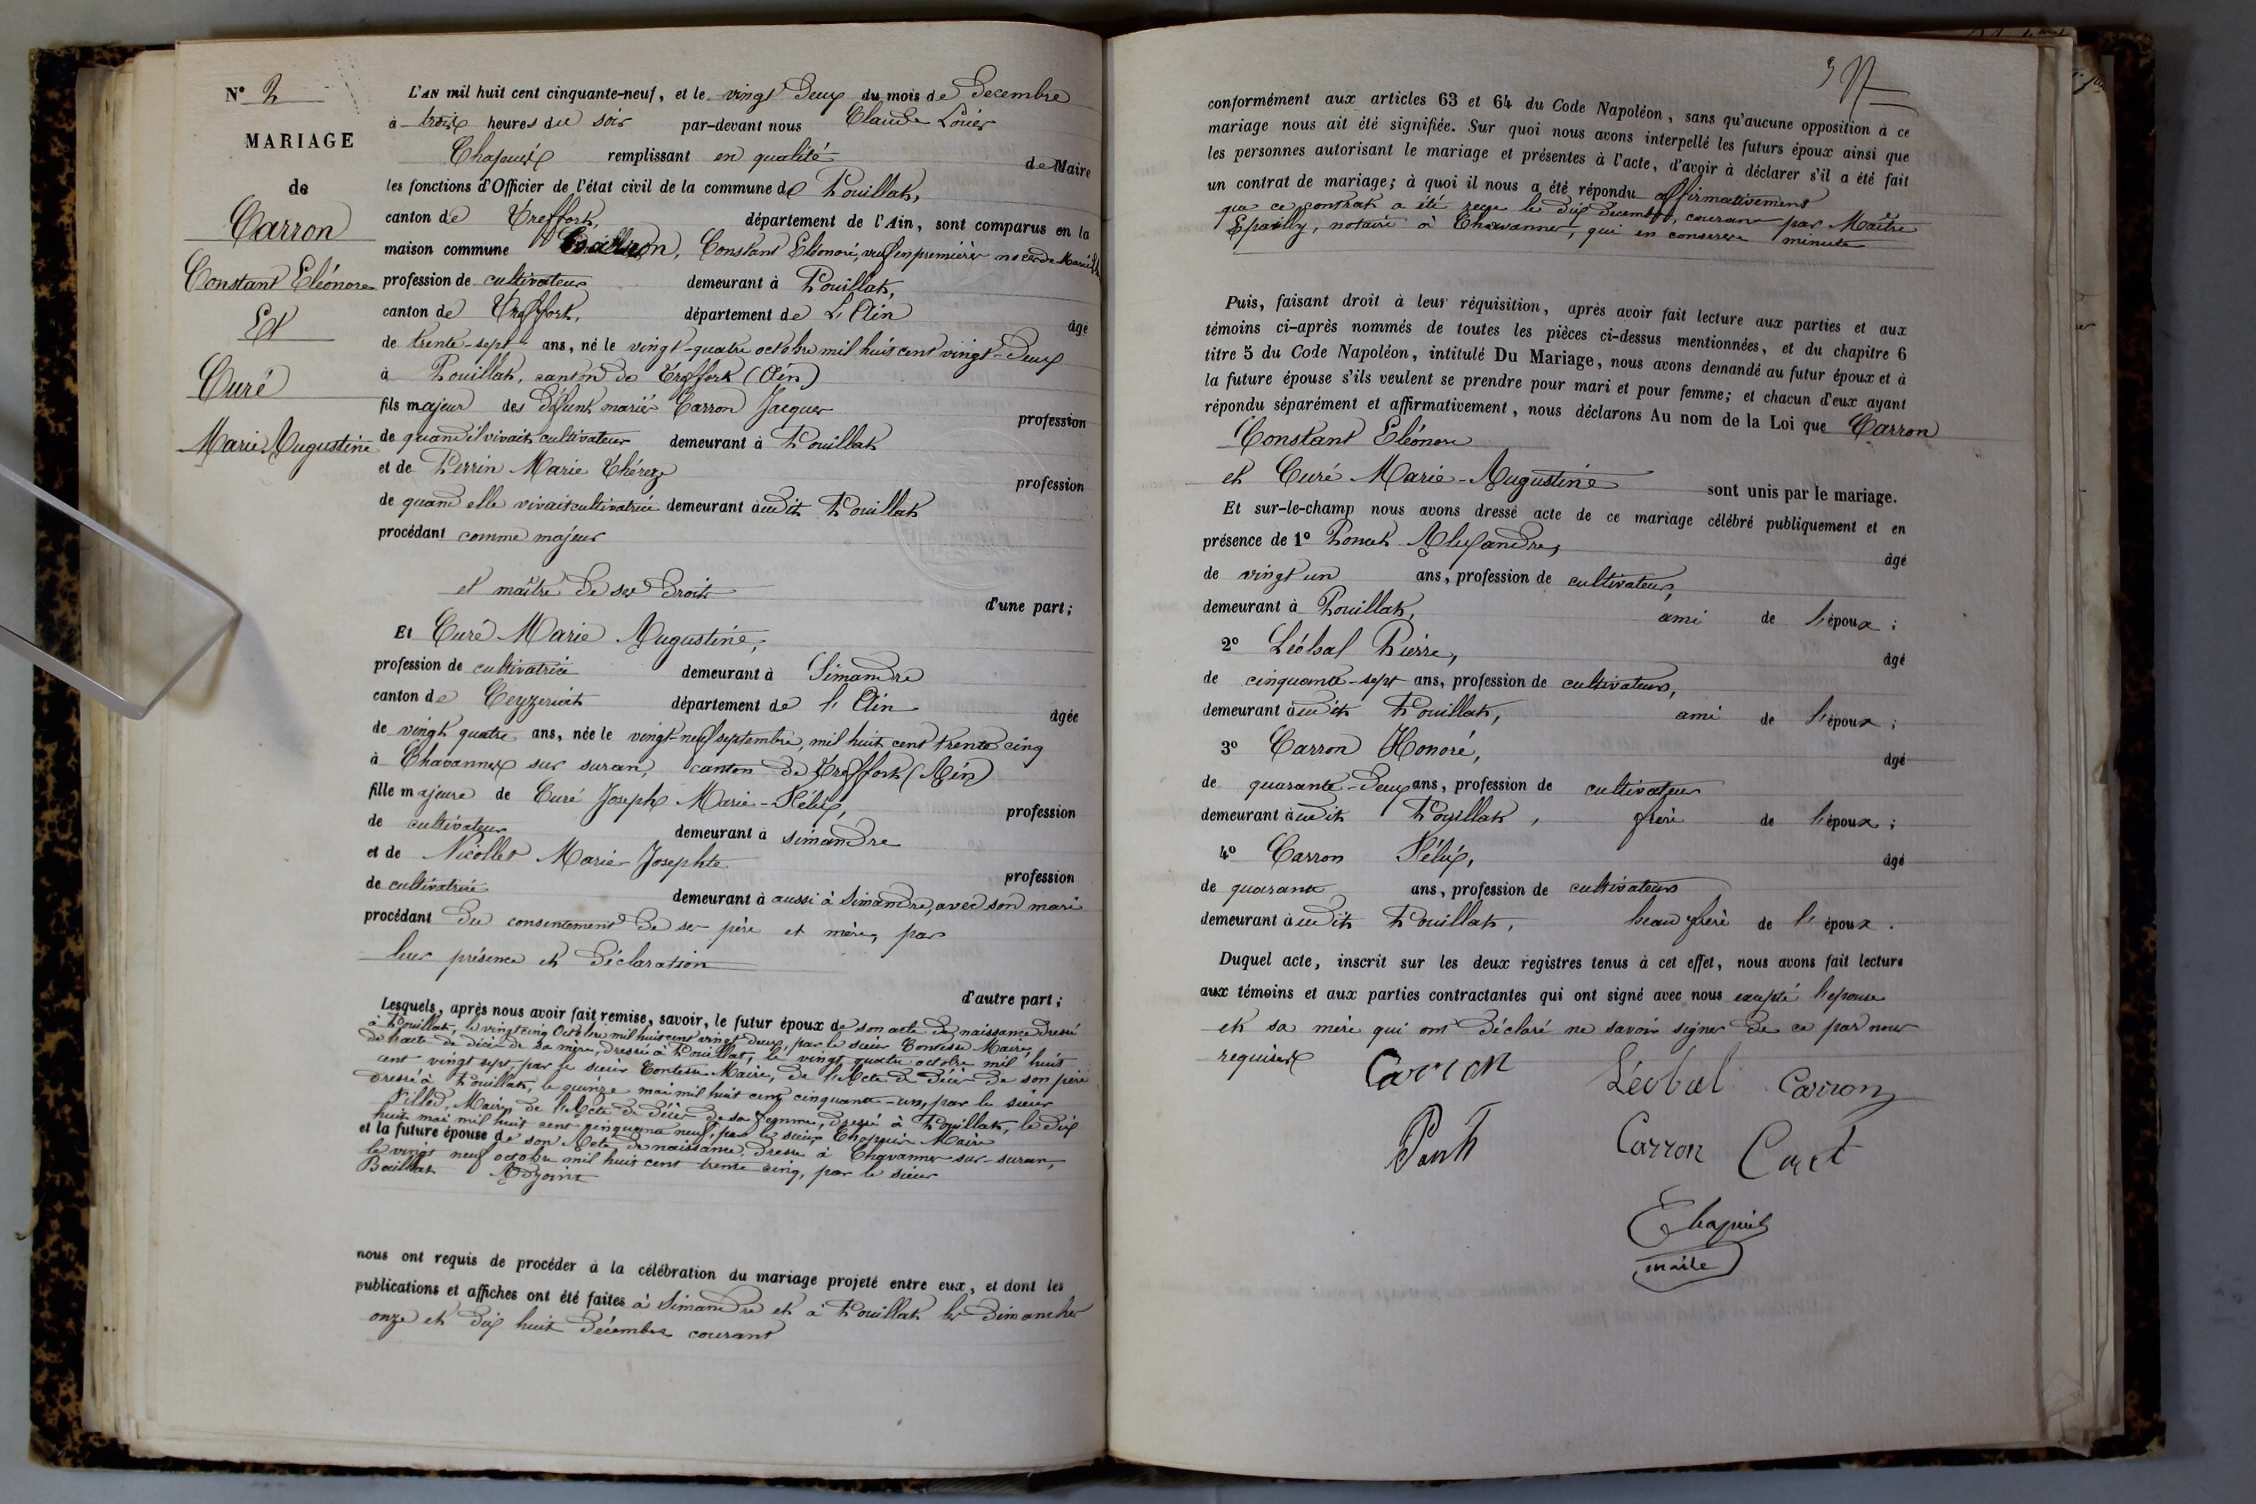 N° 2
MARIAGE
de
Carron
Constant Eléonore
Et
Curé
Marie Augustine
L'AN mil huit cent cinquante-neuf, et le vingt deux du mois de Decembre
à trois heures du soir par-devant nous Claude Louis
Chapuis remplissant en qualité de Maire
les fonctions d'Officier de l'état civil de la commune de Pouillat,
canton de Treffort, département de l'Ain, sont comparus en la
maison commune Carron, Constant Eléonore, veuf en premières noces de Marie
profession de cultivateur demeurant à Pouillat,
canton de Treffort, département de L'Ain âgé
de trente-sept ans, né le vingt-quatre octobre mil huit cent vingt-deux
à Pouillat, canton de Treffort (Ain)
fils majeur des défunt mariés Carron Jacques profession
de quand il vivait cultivateur demeurant à Pouillat
et de Perrin Marie Thérèze profession
de quand elle vivait cultivatrice demeurant audit Pouillat
procédant comme majeur
et maître de ses droits d'une part;
Et Curé Marie Augustine,
profession de cultivatrice demeurant à Simandre
canton de Ceyzeriat département de l'Ain âgée
de vingt quatre ans, née le vingt-neuf septembre, mil huit cent trente cinq
à Chavannes sur suran, canton de Treffort (Ain)
fille majeure de Curé Joseph Marie-Félix, profession
de cultivateur demeurant à Simandre
et de Nicollet Marie Josephte profession
de cultivatrice demeurant à aussi à Simandre, avec son mari
procédant du consentement de ses père et mère, par
leur présence et déclaration
d'autre part;
Lesquels, après nous avoir fait remise, savoir, le futur époux de son acte de naissance dressé
à Pouillat, le vingt cinq Octobre mil huit cent vingt deux, par le sieur Contesse Maire,
de l'acte de décès de sa mère, dressé à Pouillat, le vingt quatre octobre mil huit
cent vingt sept, par le sieur Contesse Maire, de l'Acte de décès de son père
dressé à Pouillat, le quinze mai mil huit cent cinquante-un, par le sieur
Pillod, Maire, de l'Acte de décès de sa femme, dressé à Pouillat, le dix
huit mai mil huit cent cinquante neuf, par le sieur Chapuis Maire
et la future épouse de son Acte de naissance, dressé à Chavannes-sur-suran,
le vingt neuf octobre mil huit cent trente cinq, par le sieur
Baillat Adjoint
nous ont requis de procéder à la célébration du mariage projeté entre eux, et dont les
publications et affiches ont été faites à Simandre et à Pouillat les Dimanches
onze et dix huit Décembre courant
conformément aux articles 63 et 64 du Code Napoléon, sans qu'aucune opposition à ce
mariage nous ait été signifiée. Sur quoi nous avons interpellé les futurs époux ainsi que
les personnes autorisant le mariage et présentes à l'acte, d'avoir à déclarer s'il a été fait
un contrat de mariage; à quoi il nous a été répondu affirmativement
que ce contrat a été reçu le dix décembre, courant par Maître
Epailly, notaire à Chavannes, qui en conserve minute
Puis, faisant droit à leur réquisition, après avoir fait lecture aux parties et aux
témoins ci-après nommés de toutes les pièces ci-dessus mentionnées, et du chapitre 6
titre 5 du Code Napoléon, intitulé Du Mariage, nous avons demandé au futur époux et à
la future épouse s'ils veulent se prendre pour mari et pour femme; et chacun d'eux ayant
répondu séparément et affirmativement, nous déclarons Au nom de la Loi que Carron
Constant Eléonore
et Curé Marie-Augustine sont unis par le mariage.
Et sur-le-champ nous avons dressé acte de ce mariage célébré publiquement et en
présence de 1° Ponct Alexandre, âgé
de vingt un ans, profession de cultivateur,
demeurant à Pouillat, ami de l'époux;
2° Léobal Pierre, âgé
de cinquante-sept ans, profession de cultivateur,
demeurant audit Pouillat, ami de l'époux;
3° Carron Honoré, âgé
de quarante-deux ans, profession de cultivateur
demeurant audit Pouillat, frère de l'époux;
4° Carron Félix, âgé
de quarante ans, profession de cultivateur
demeurant audit Pouillat, beau frère de l'époux.
Duquel acte, inscrit sur les deux registres tenus à cet effet, nous avons fait lecture
aux témoins et aux parties contractantes qui ont signé avec nous excepté l'epouse
et sa mère qui ont déclaré ne savoir signer de ce par nous
requises
Carron Léobal Carron
Carron
Chapuis
maire